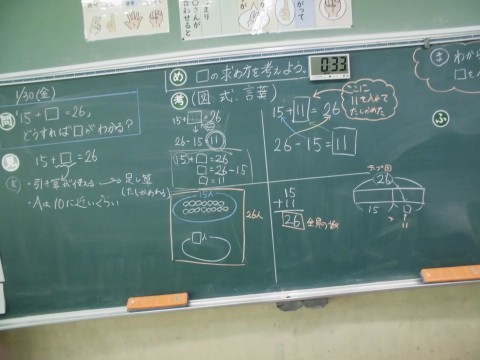 1/30(金)
問
15+□=26,
どうすれば□がわかる?
見
15+□=26
・引き算が使える→足し算
(たしかめ)
・Aは10に近いぐらい
め
□の求め方を考えよう。
0:33
考
(図 式 言葉)
15+□=26
26-15=11
15+□=26
□=26-15
□=11
15人
□人
26人
ここに
11を入れて
たしかめた
15+11=26
26-15=11
15
+11
26
全員の数
テープ図
26
15
□
11
ま
わから
□を
ふ